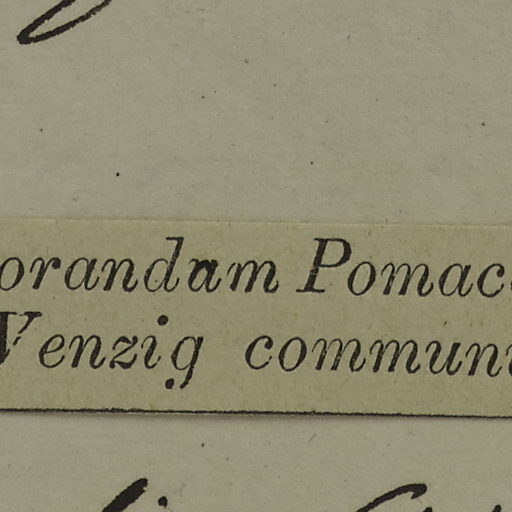 orandam Pomac
Wenzig commun